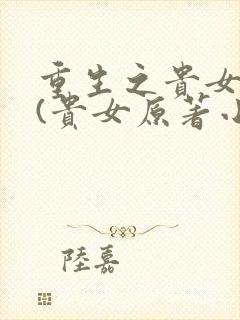 重生之貴女
(貴女原著小
陸嘉